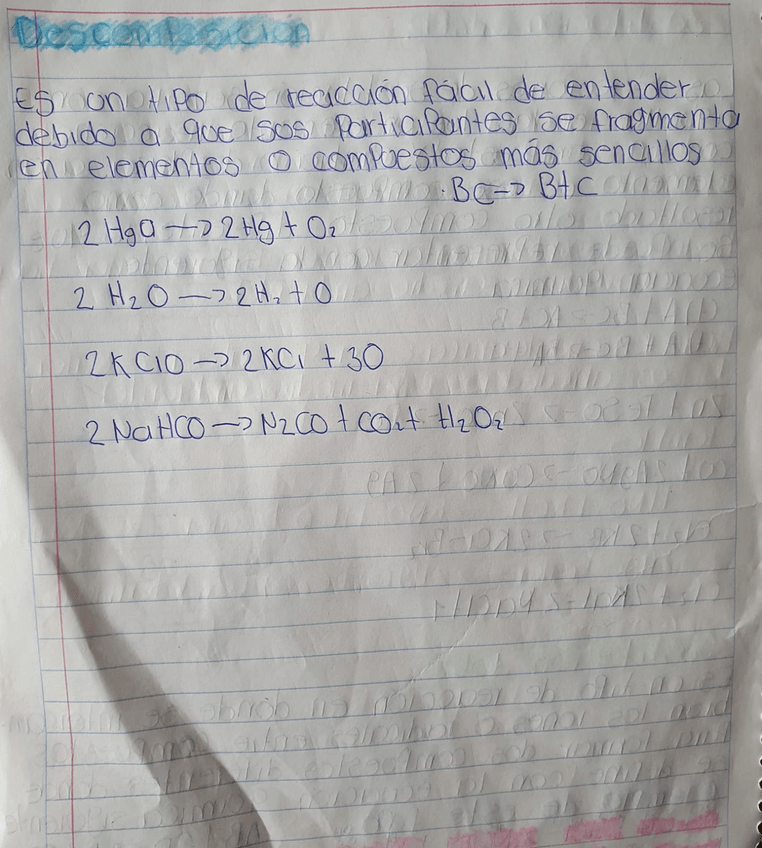 Descomposición
Es un tipo de reacción fácil de entender
debido a que sus participantes se fragmenta
en elementos o compuestos más sencillos
BC => B+C
2 HgO → 2Hg + O₂
2 H₂O → 2H₂ + O
2KClO → 2KCl + 3O
2NaHCO → N2CO + CO₂ + H₂O₂